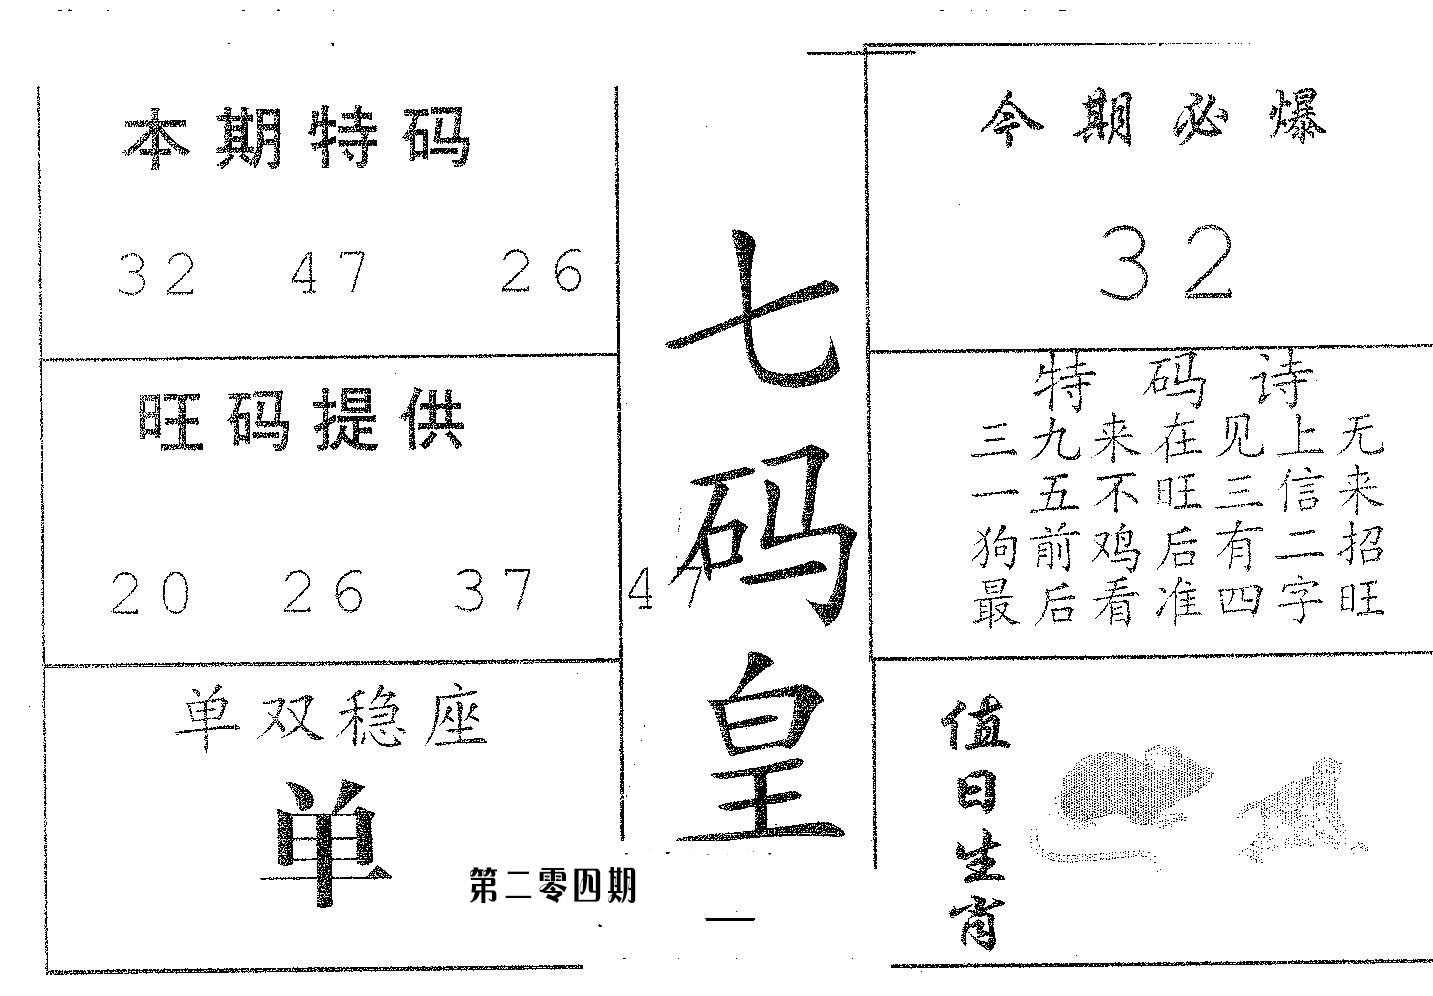 本期特码
32 47 26
旺码提供
20 26 37 47
单双稳座
单
七码皇
第二零四期
今期必爆
32
特码诗
三九来在见上无
一五不旺三信来
狗前鸡后有二招
最后看准四字旺
值日生肖